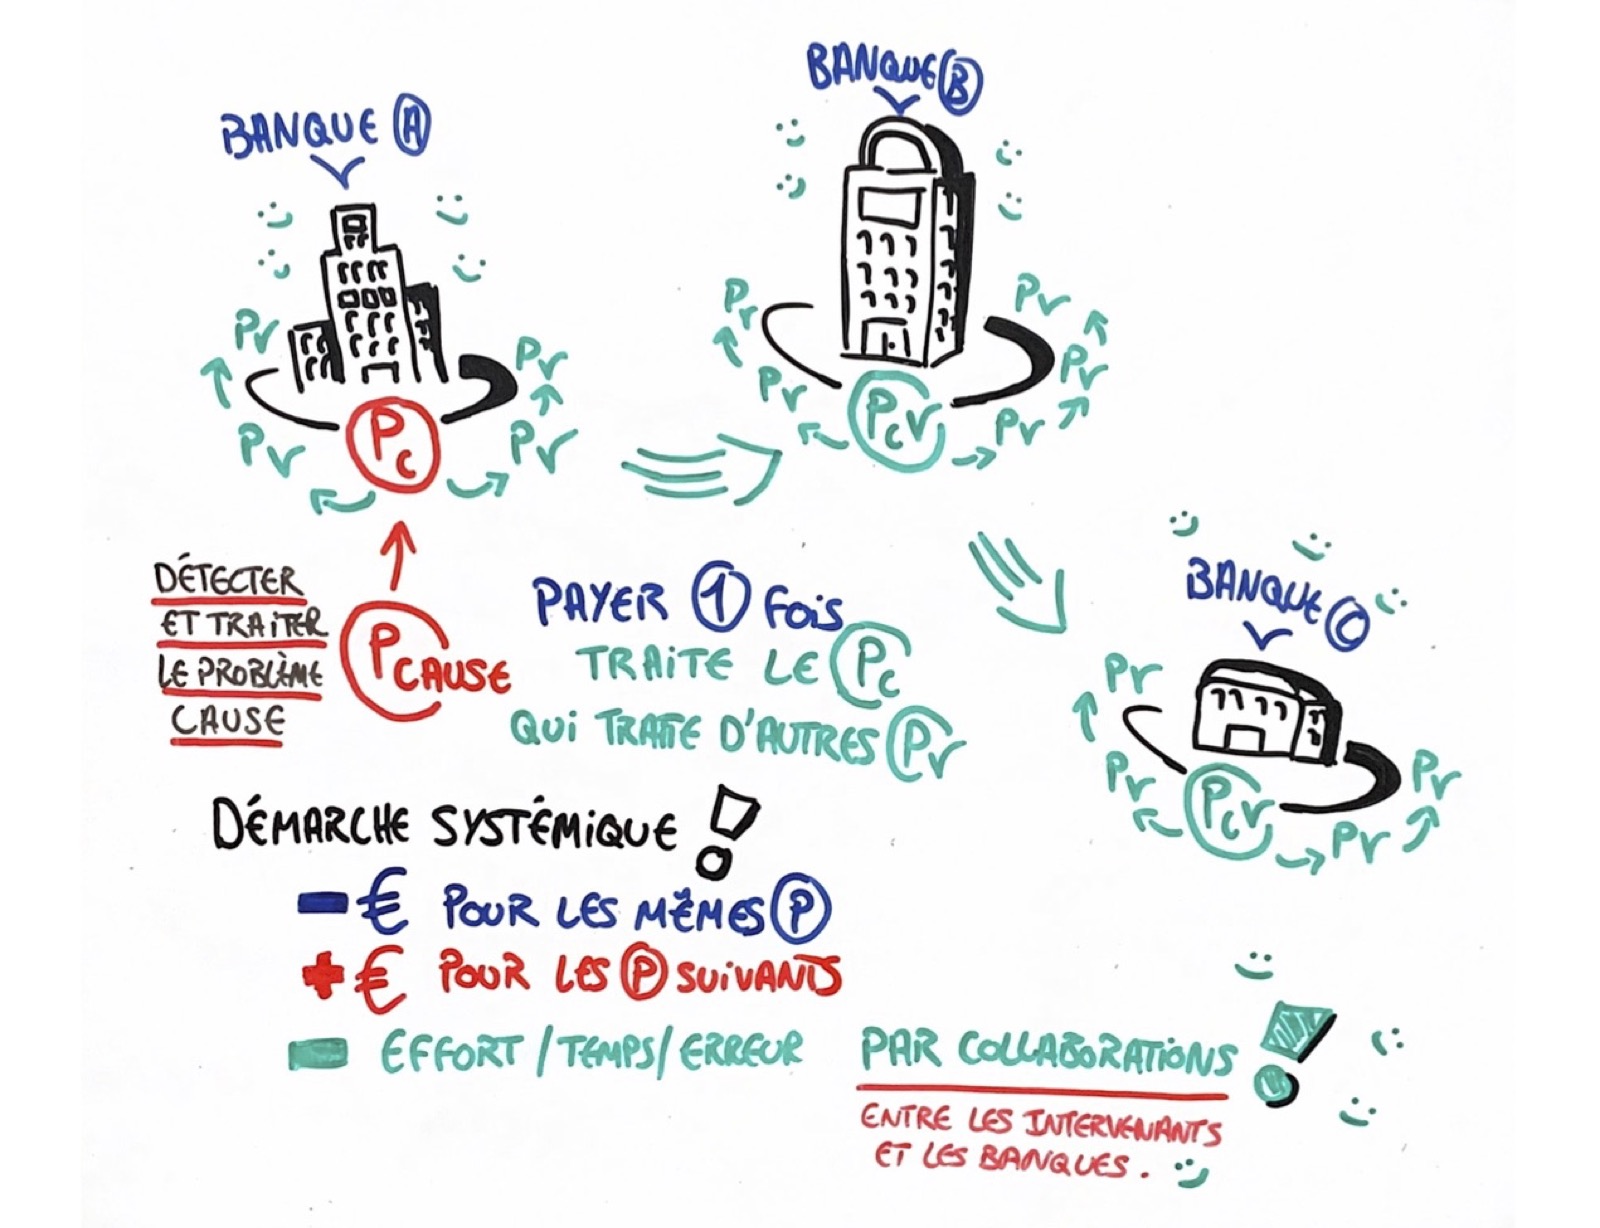 BANQUE A
Pr
Pr
Pr
Pr
Pc
BANQUE B
Pr
Pr
Pcr
Pr
Pr
Pr
BANQUE C
Pr
Pr
Pcr
Pr
Pr
DÉTECTER
ET TRAITER
LE PROBLÈME
CAUSE
PCAUSE
PAYER 1 FOIS
TRAITE LE Pc
QUI TRAITE D'AUTRES Pr
DÉMARCHE SYSTÉMIQUE !
- € POUR LES MÊMES P
+ € POUR LES P SUIVANTS
- EFFORT / TEMPS / ERREUR
PAR COLLABORATIONS !
ENTRE LES INTERVENANTS
ET LES BANQUES.